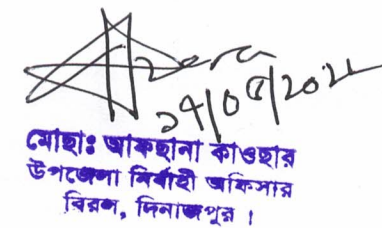 ২৪/০৫/২০২১
মোছাঃ আফছানা কাওছার
উপজেলা নির্বাহী অফিসার
বিরল, দিনাজপুর।